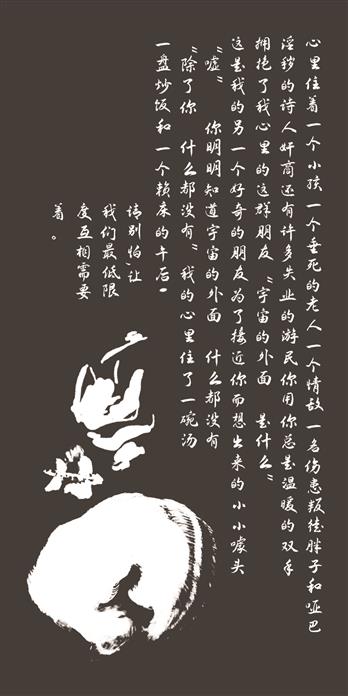 心里住着一个小孩一个垂死的老人一个情敌一名伤患叛徒胖子和哑巴
淫秽的诗人奸商还有许多失业的游民你用你总是温暖的双手
拥抱了我心里的这群朋友 “宇宙的外面 是什么”
这是我的另一个好奇的朋友为了接近你而想出来的小小噱头
“嘘” 你明明知道宇宙的外面 什么都没有
“除了你 什么都没有” 我的心里住了一碗汤
一盘炒饭和一个赖床的午后。
请别怕让
我们最低限
度互相需要
着。